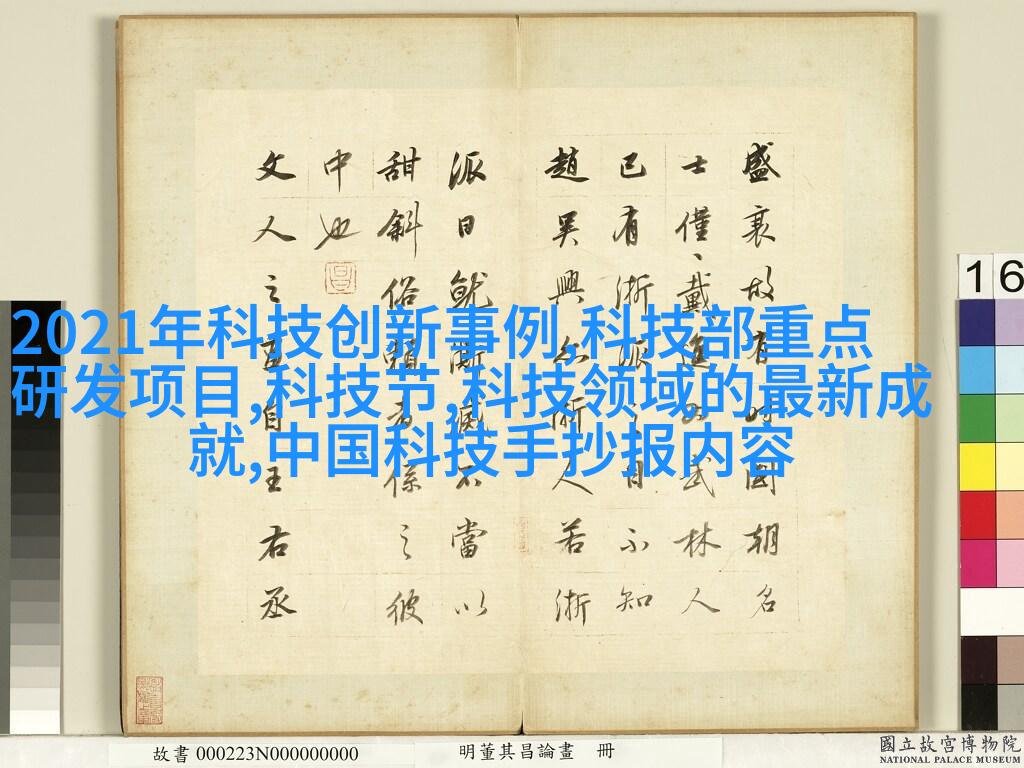 2021年科技创新事例,科技部重点
研发项目,科技节,科技领域的最新成
就,中国科技手抄报内容
盛衰故有時國朝名
士僅戴進為武林人
已有浙派之目不知
趙吳興亦浙人若浙
派日就澌滅不當以
甜斜俗賴者係之彼
中也
文人之畫自王右丞
16
故書 000223N000000000
明董其昌論畫 冊
國立故宮博物院
NATIONAL PALACE MUSEUM